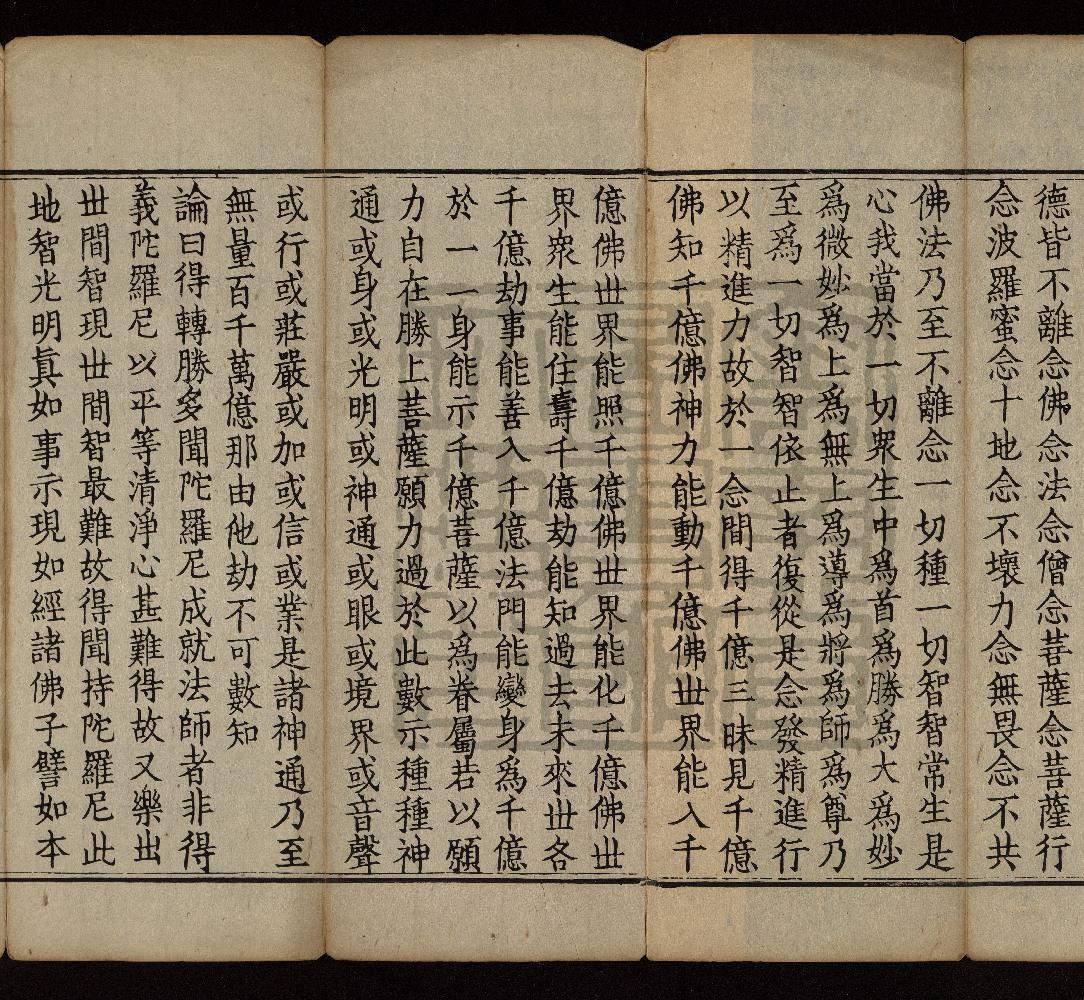 德皆不離念佛念法念僧念菩薩念菩薩行
念波羅蜜念十地念不壞力念無畏念不共
佛法乃至不離念一切種一切智智常生是
心我當於一切眾生中爲首爲勝爲大爲妙
爲微妙爲上爲無上爲導爲將爲師爲尊乃
至爲一切智智依止者復從是念發精進行
以精進力故於一念間得千億三昧見千億
佛知千億佛神力能動千億佛世界能入千
億佛世界能照千億佛世界能化千億佛世
界眾生能住壽千億劫能知過去未來世各
千億劫事能善入千億法門能變身爲千億
於一一身能示千億菩薩以爲眷屬若以願
力自在勝上菩薩願力過於此數示種種神
通或身或光明或神通或眼或境界或音聲
或行或莊嚴或加或信或業是諸神通乃至
無量百千萬億那由他劫不可數知
論曰得轉勝多聞陀羅尼成就法師者非得
義陀羅尼以平等清淨心甚難得故又樂出
世間智現世間智最難故得聞持陀羅尼此
地智光明真如事示現如經諸佛子譬如本